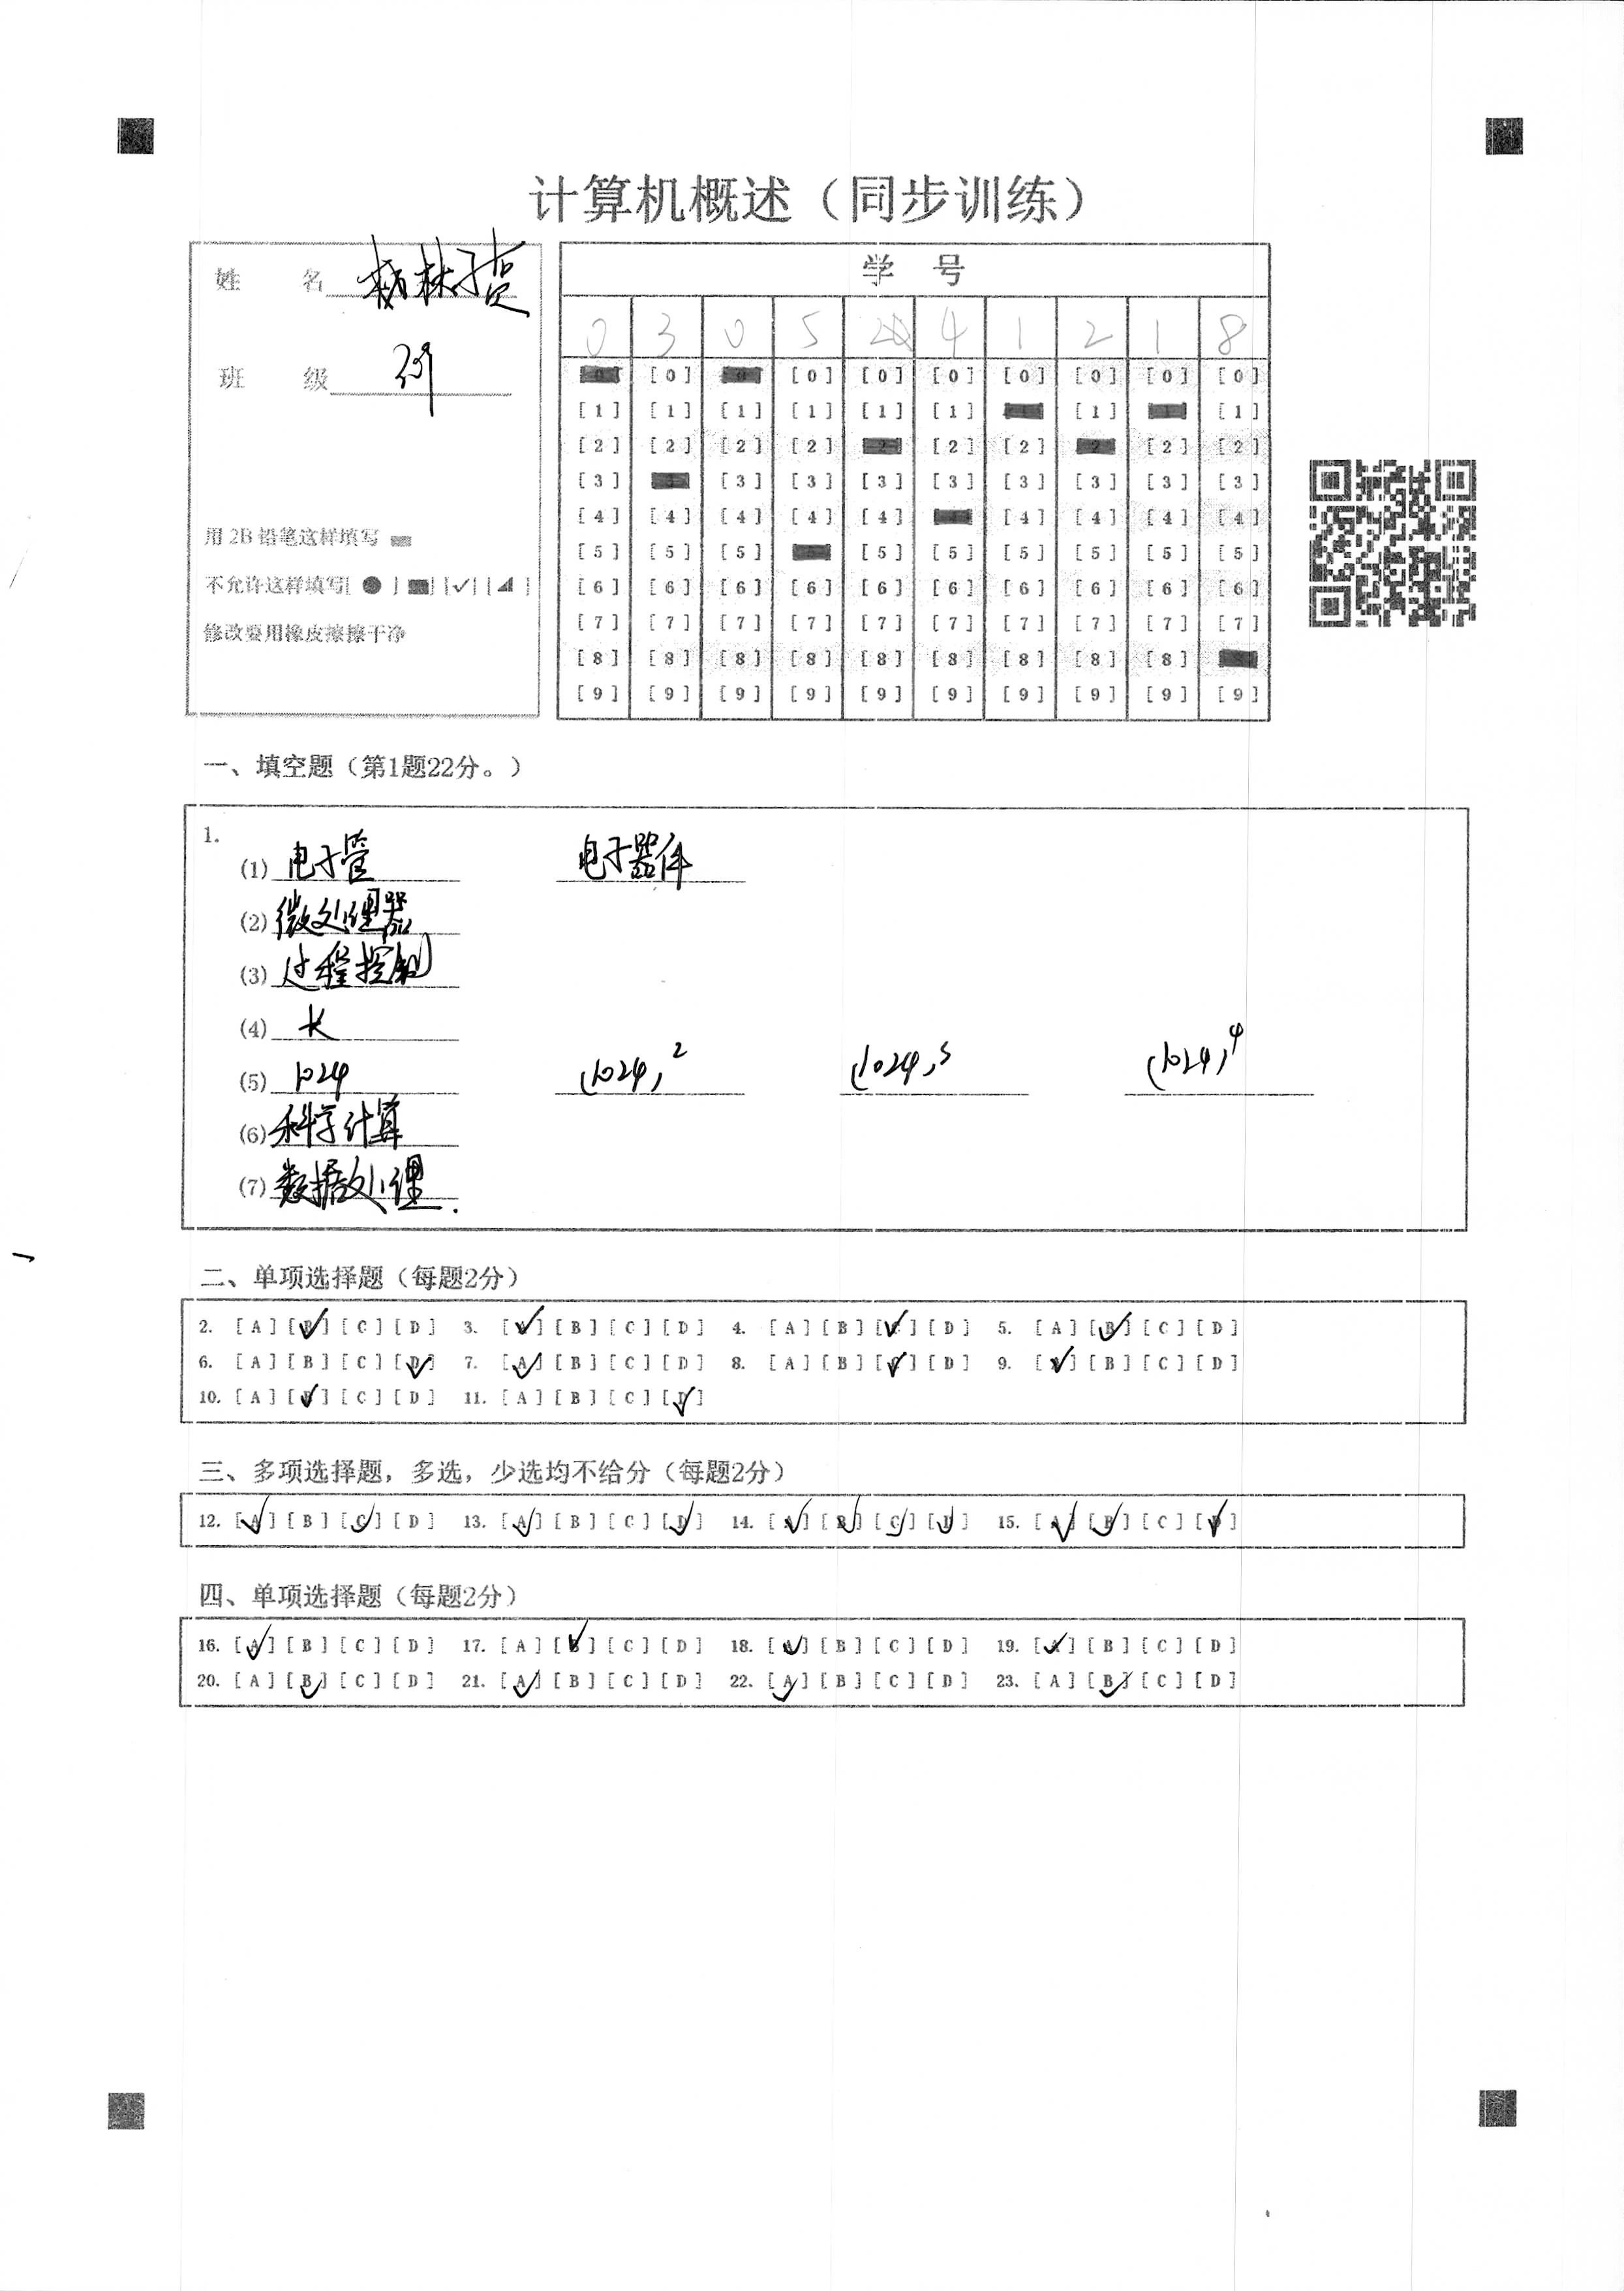 计算机概述（同步训练）
姓 名
班 级
用 2B 铅笔这样填写
不允许这样填写[ ● ] [■] [✓] [◢ ]
修改要用橡皮擦擦干净
学 号
0 3 0 5 2 4 1 2 1 8
[0] [0] [0] [0] [0] [0] [0] [0]
[1] [1] [1] [1] [1] [1] [1] [1]
[2] [2] [2] [2] [2] [2] [2] [2]
[3] [3] [3] [3] [3] [3] [3] [3] [3]
[4] [4] [4] [4] [4] [4] [4] [4] [4]
[5] [5] [5] [5] [5] [5] [5] [5] [5]
[6] [6] [6] [6] [6] [6] [6] [6] [6] [6]
[7] [7] [7] [7] [7] [7] [7] [7] [7] [7]
[8] [8] [8] [8] [8] [8] [8] [8] [8]
[9] [9] [9] [9] [9] [9] [9] [9] [9] [9]
一、填空题（第1题22分。）
1.
(1) 电子管 电子器件
(2) 微处理器
(3) 过程控制
(4) 长
(5) 1024 (1024)² (1024)³ (1024)⁴
(6) 科学计算
(7) 数据处理.
二、单项选择题（每题2分）
2. [A] [B] [C] [D] 3. [A] [B] [C] [D] 4. [A] [B] [C] [D] 5. [A] [B] [C] [D]
6. [A] [B] [C] [D] 7. [A] [B] [C] [D] 8. [A] [B] [C] [D] 9. [A] [B] [C] [D]
10. [A] [B] [C] [D] 11. [A] [B] [C] [D]
三、多项选择题，多选，少选均不给分（每题2分）
12. [A] [B] [C] [D] 13. [A] [B] [C] [D] 14. [A] [B] [C] [D] 15. [A] [B] [C] [D]
四、单项选择题（每题2分）
16. [A] [B] [C] [D] 17. [A] [B] [C] [D] 18. [A] [B] [C] [D] 19. [A] [B] [C] [D]
20. [A] [B] [C] [D] 21. [A] [B] [C] [D] 22. [A] [B] [C] [D] 23. [A] [B] [C] [D]